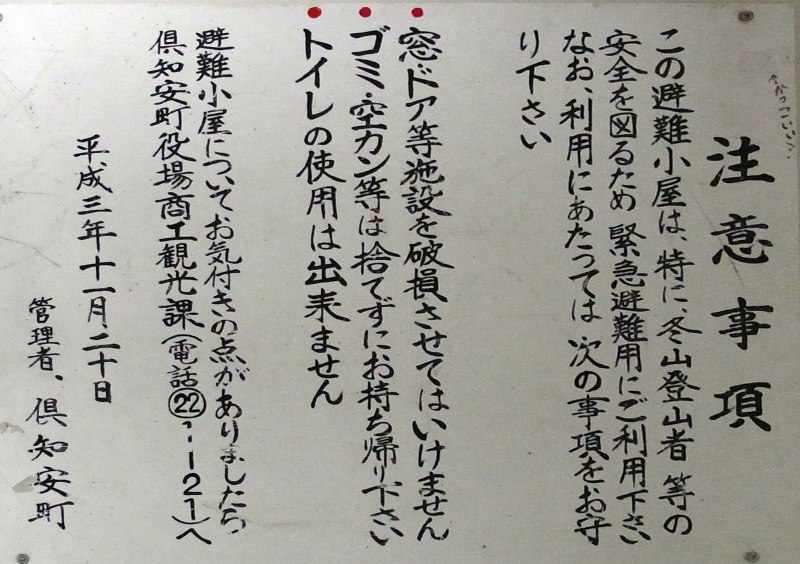 注意事項
この避難小屋は、特に、冬山登山者等の
安全を図るため緊急避難用にご利用下さい
なお、利用にあたっては次の事項をお守
り下さい
窓ドア等施設を破損させてはいけません
ゴミ・空カン等は捨てずにお持ち帰り下さい
トイレの使用は出来ません
避難小屋についてお気付きの点がありましたら、
倶知安町役場商工観光課(電話㉒1121)へ
平成三年十一月二十日
管理者、倶知安町